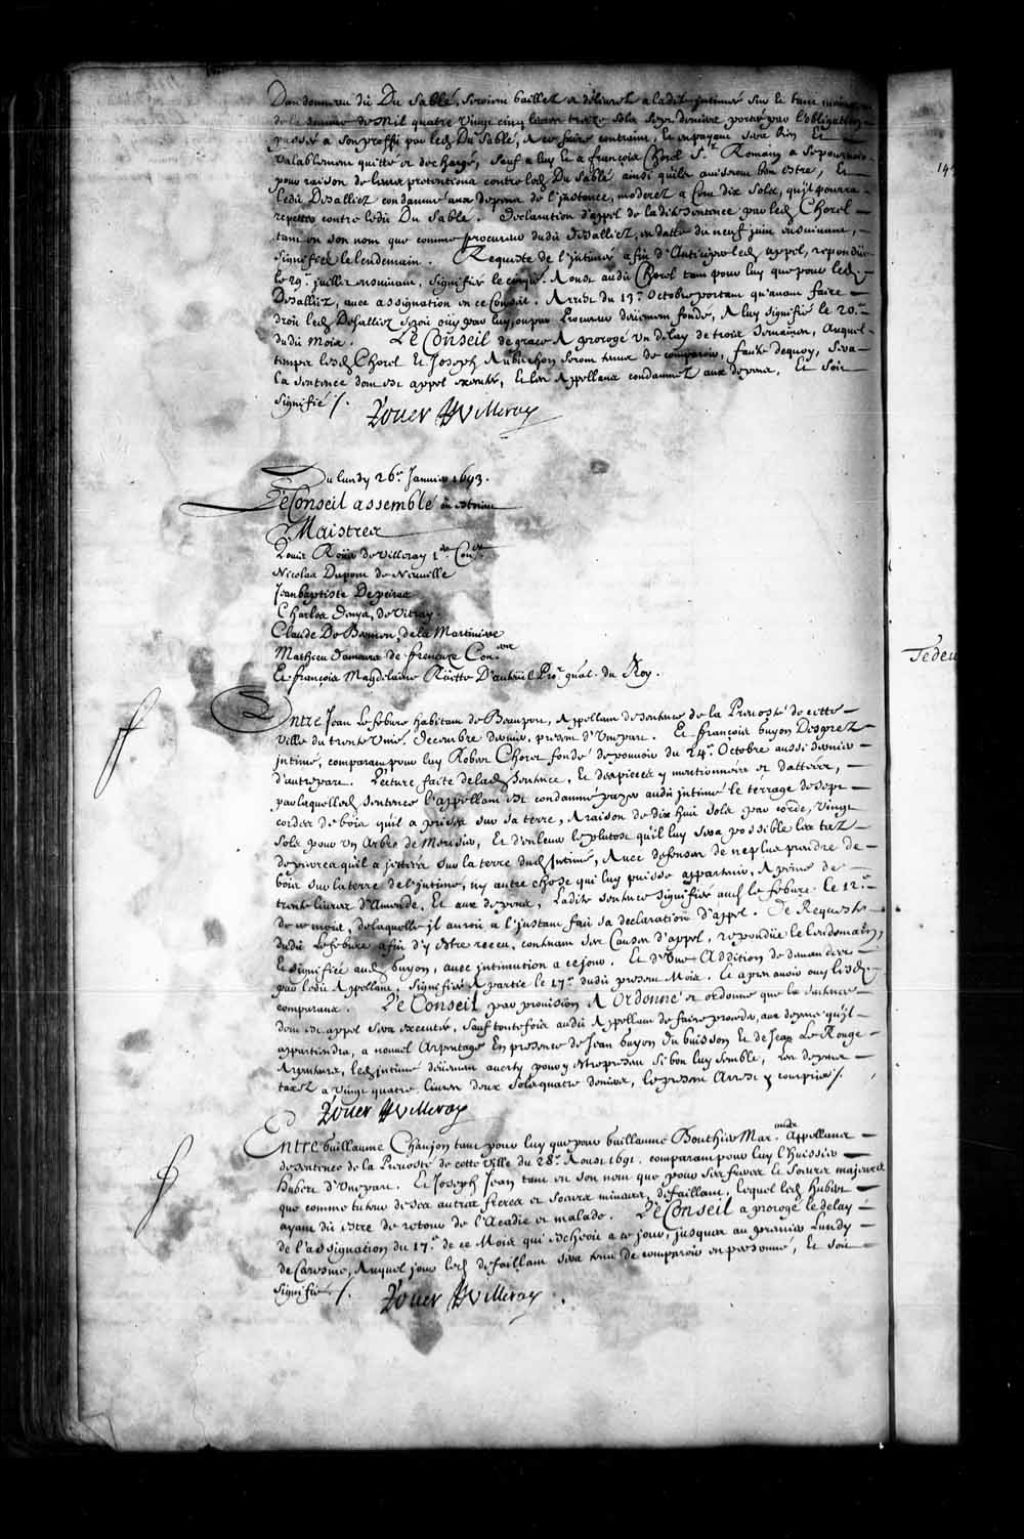 Dandonneau dit Du Sablé, seroient baillez et delivrez a ladite intimée sur et tant moins
de la somme de Mil quatre vingt cinq livres treize sols sept deniers portée par l'obligation
passée a son proffit par led. Du Sablé, A ce faire contraint, Et en payant sera bien Et
valablement quitte et deschargé, sauf a luy Et a françois Chorel Sr. Romain a se pourvoir
pour raison de leurs pretentions contre led. Du Sablé ainsi quils aviseront bon estre, Et
ledit Desalliez condamné aux depens de l'instance, moderez a Cent dix sols, qu'il pourra
repetter contre ledit Du Sable. Declaration d'appel de ladite sentence par led. Chorel
tant en son nom que comme procureur dudit Desalliez, en datte du neuf juin ensuivant,
signifiée le lendemain. Requeste de l'intimée afin d'Anticiper led. appel, repondüe
le 29e. juillet ensuivant, signifiée le Aoust audit Chorel tant pour luy que pour led.
Desalliez, avec assignation en ce Conseil. Arrest du 13e. Octobre portant qu'avant faire
droit led. Desalliez seroit oüy par luy, ou par Procureur deüement fondé, A luy signifié le 20e.
dudit mois. Le Conseil de grace A prorogé Un delay de trois semaines, Auquel
temps lesd. Chorel Et Joseph Aubuchon seront tenus de comparoir, faute dequoy, sera
la sentence dont est appel executée, Et les Appellans condamnez aux depens, Et soit
signifié /.
Roüer De Villeray
Du lundy 26e. Janvier 1693.
Le Conseil assemblé ou estoient
Maistres
Louis Roüer de Villeray 1er. Conler.
Nicolas Dupont de Neuville
Jean baptiste Depeiras
Charles Denys de Vitray
Claude De Bermen de la Martiniere
Mathieu Damours de freneuze Coners.
Et françois Magdelaine Rüette D'auteüil Pror. gñal. du Roy.
Tedeu
Entre Jean Lefebvre habitant de Beauport, Appellant de sentence de la Prevosté de cette
ville du trente Unie. Decembre dernier, present d'Une part. Et françois Guyon Desprez
intimé, comparant pour luy Robert Chorel fondé de pouvoir du 24e. Octobre aussi dernier
d'autre part. Lecture faite de lad. sentence, Et des pieces y mentionnées et dattées,
par laquelle led. sentence l'appellant est condamné payer audit intimé le térrage de sept
cordes de bois quil a prises sur sa terre, A raison de dix huit sols par corde, vingt
sols pour Un Arbre de Merisier, Et d'enlever le plutost qu'il luy sera possible les taz
de pierres quil a jettées sur la terre dud. Intimé, Avec defenses de ne plus prendre de
bois sur la terre de l'intimé, ny autre chose qui luy puisse appartenir, A peine de
trente livres d'Amende, Et aux depens, Ladite sentence signifiée aud. le febvre le 12e.
de ce mois, de laquelle jl auroit a l'jnstant fait sa declaration d'appel. Requeste
dudit Lefebvre afin d'y estre receu, contenant ses Causes d'appel, repondüe le lendemain,
Et signifiée aud. Guyon, avec jntimation a ce jour. Et d'Une Addition de demandes
par ledit Appellant, signifiée A partie le 17e. dudit present Mois. Et apres avoir ouy lesd.
comparans. Le Conseil par provision A Ordonné et ordonne que la sentence
dont est appel sera executée, sauf toutefois audit Appellant de faire proceder, aux depens qu'il
appartiendra, a nouvel Arpentage En presence de Jean Guyon du buisson Et de Jean Le Rouge
Arpenteurs, led. intimé deüement averty pour y estre present si bon luy semble, Les depens
taxez a vingt quatre livres deux sols quatre deniers, le present Arrest y compris /.
Roüer De Villeray
Entre Guillaume Chanjon tant pour luy que pour Guillaume Bouthier Marchands Appellans
de sentence de la Prevosté de cette Ville du 28e. Aoust 1691. comparant pour luy l'huissier
Hubert d'Une part. Et Joseph Jean tant en son nom que pour ses freres Et soeurs majeures
que comme tuteur de ses autres freres et soeurs mineurs, defaillant, lequel led. Hubert
ayant dit estre de retour de l'Acadie et malade. Le Conseil a prorogé le delay
de l'assignation du 17e. de ce Mois qui escheoit a ce jour, jusques au premier Lundy
de Caresme, Auquel jour led. defaillant sera tenu de comparoir en personne, Et soit
signifié /.
Roüer De Villeray